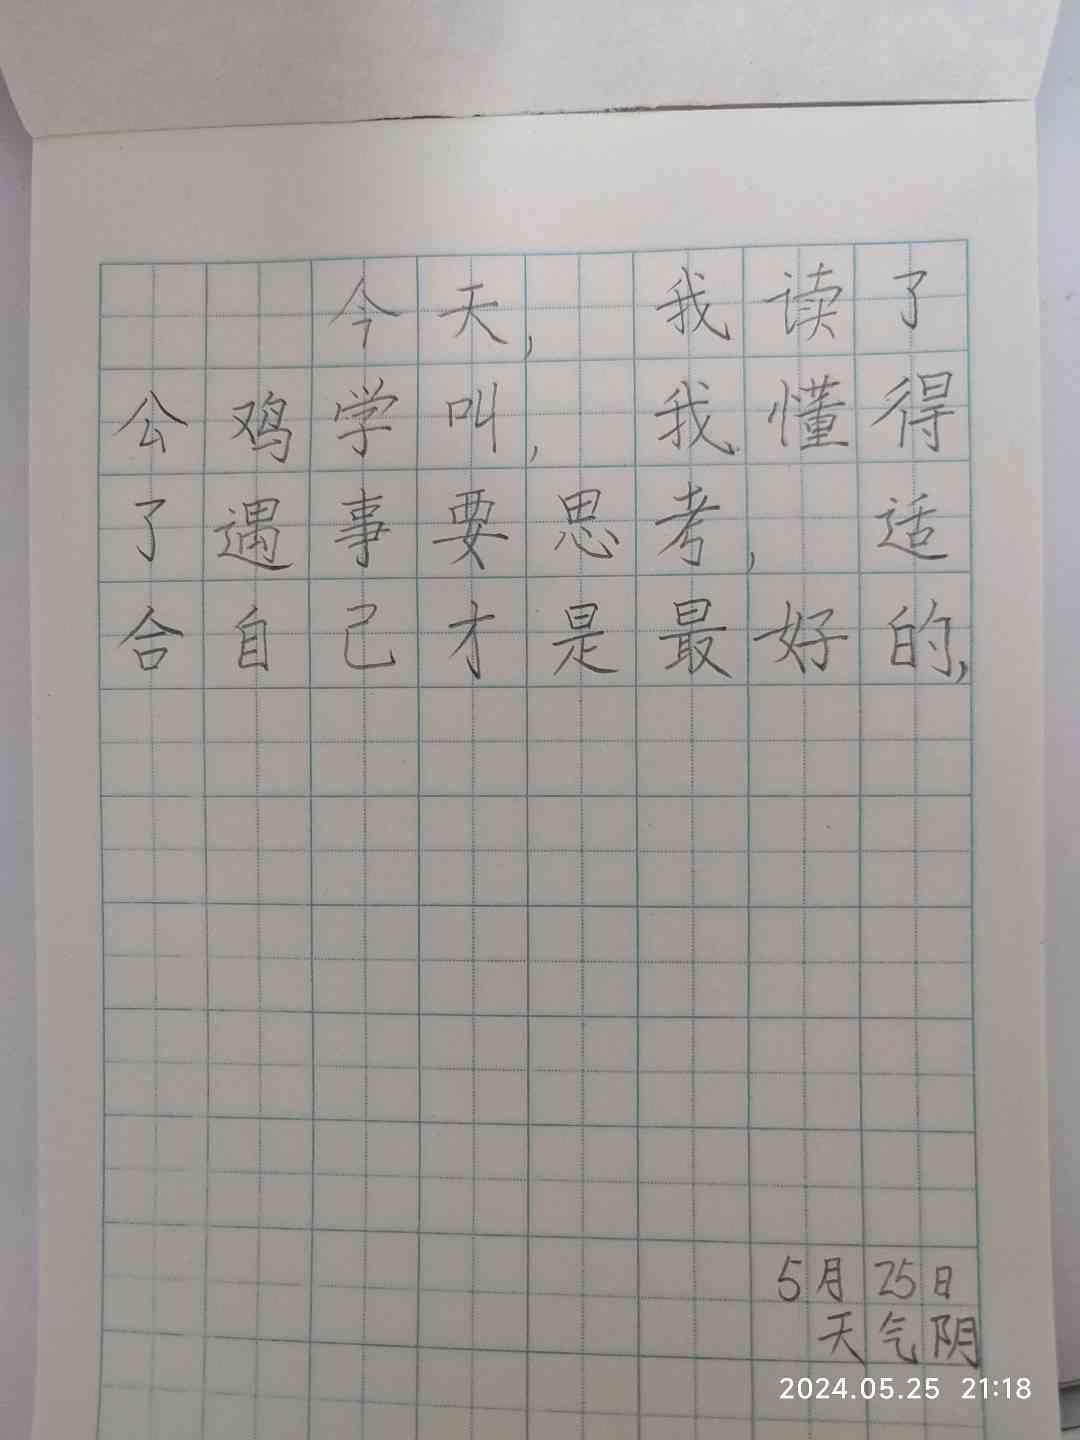 今天，我读了
公鸡学叫，我懂得
了遇事要思考，适
合自己才是最好的，
5月25日
天气阴
2024.05.25 21:18